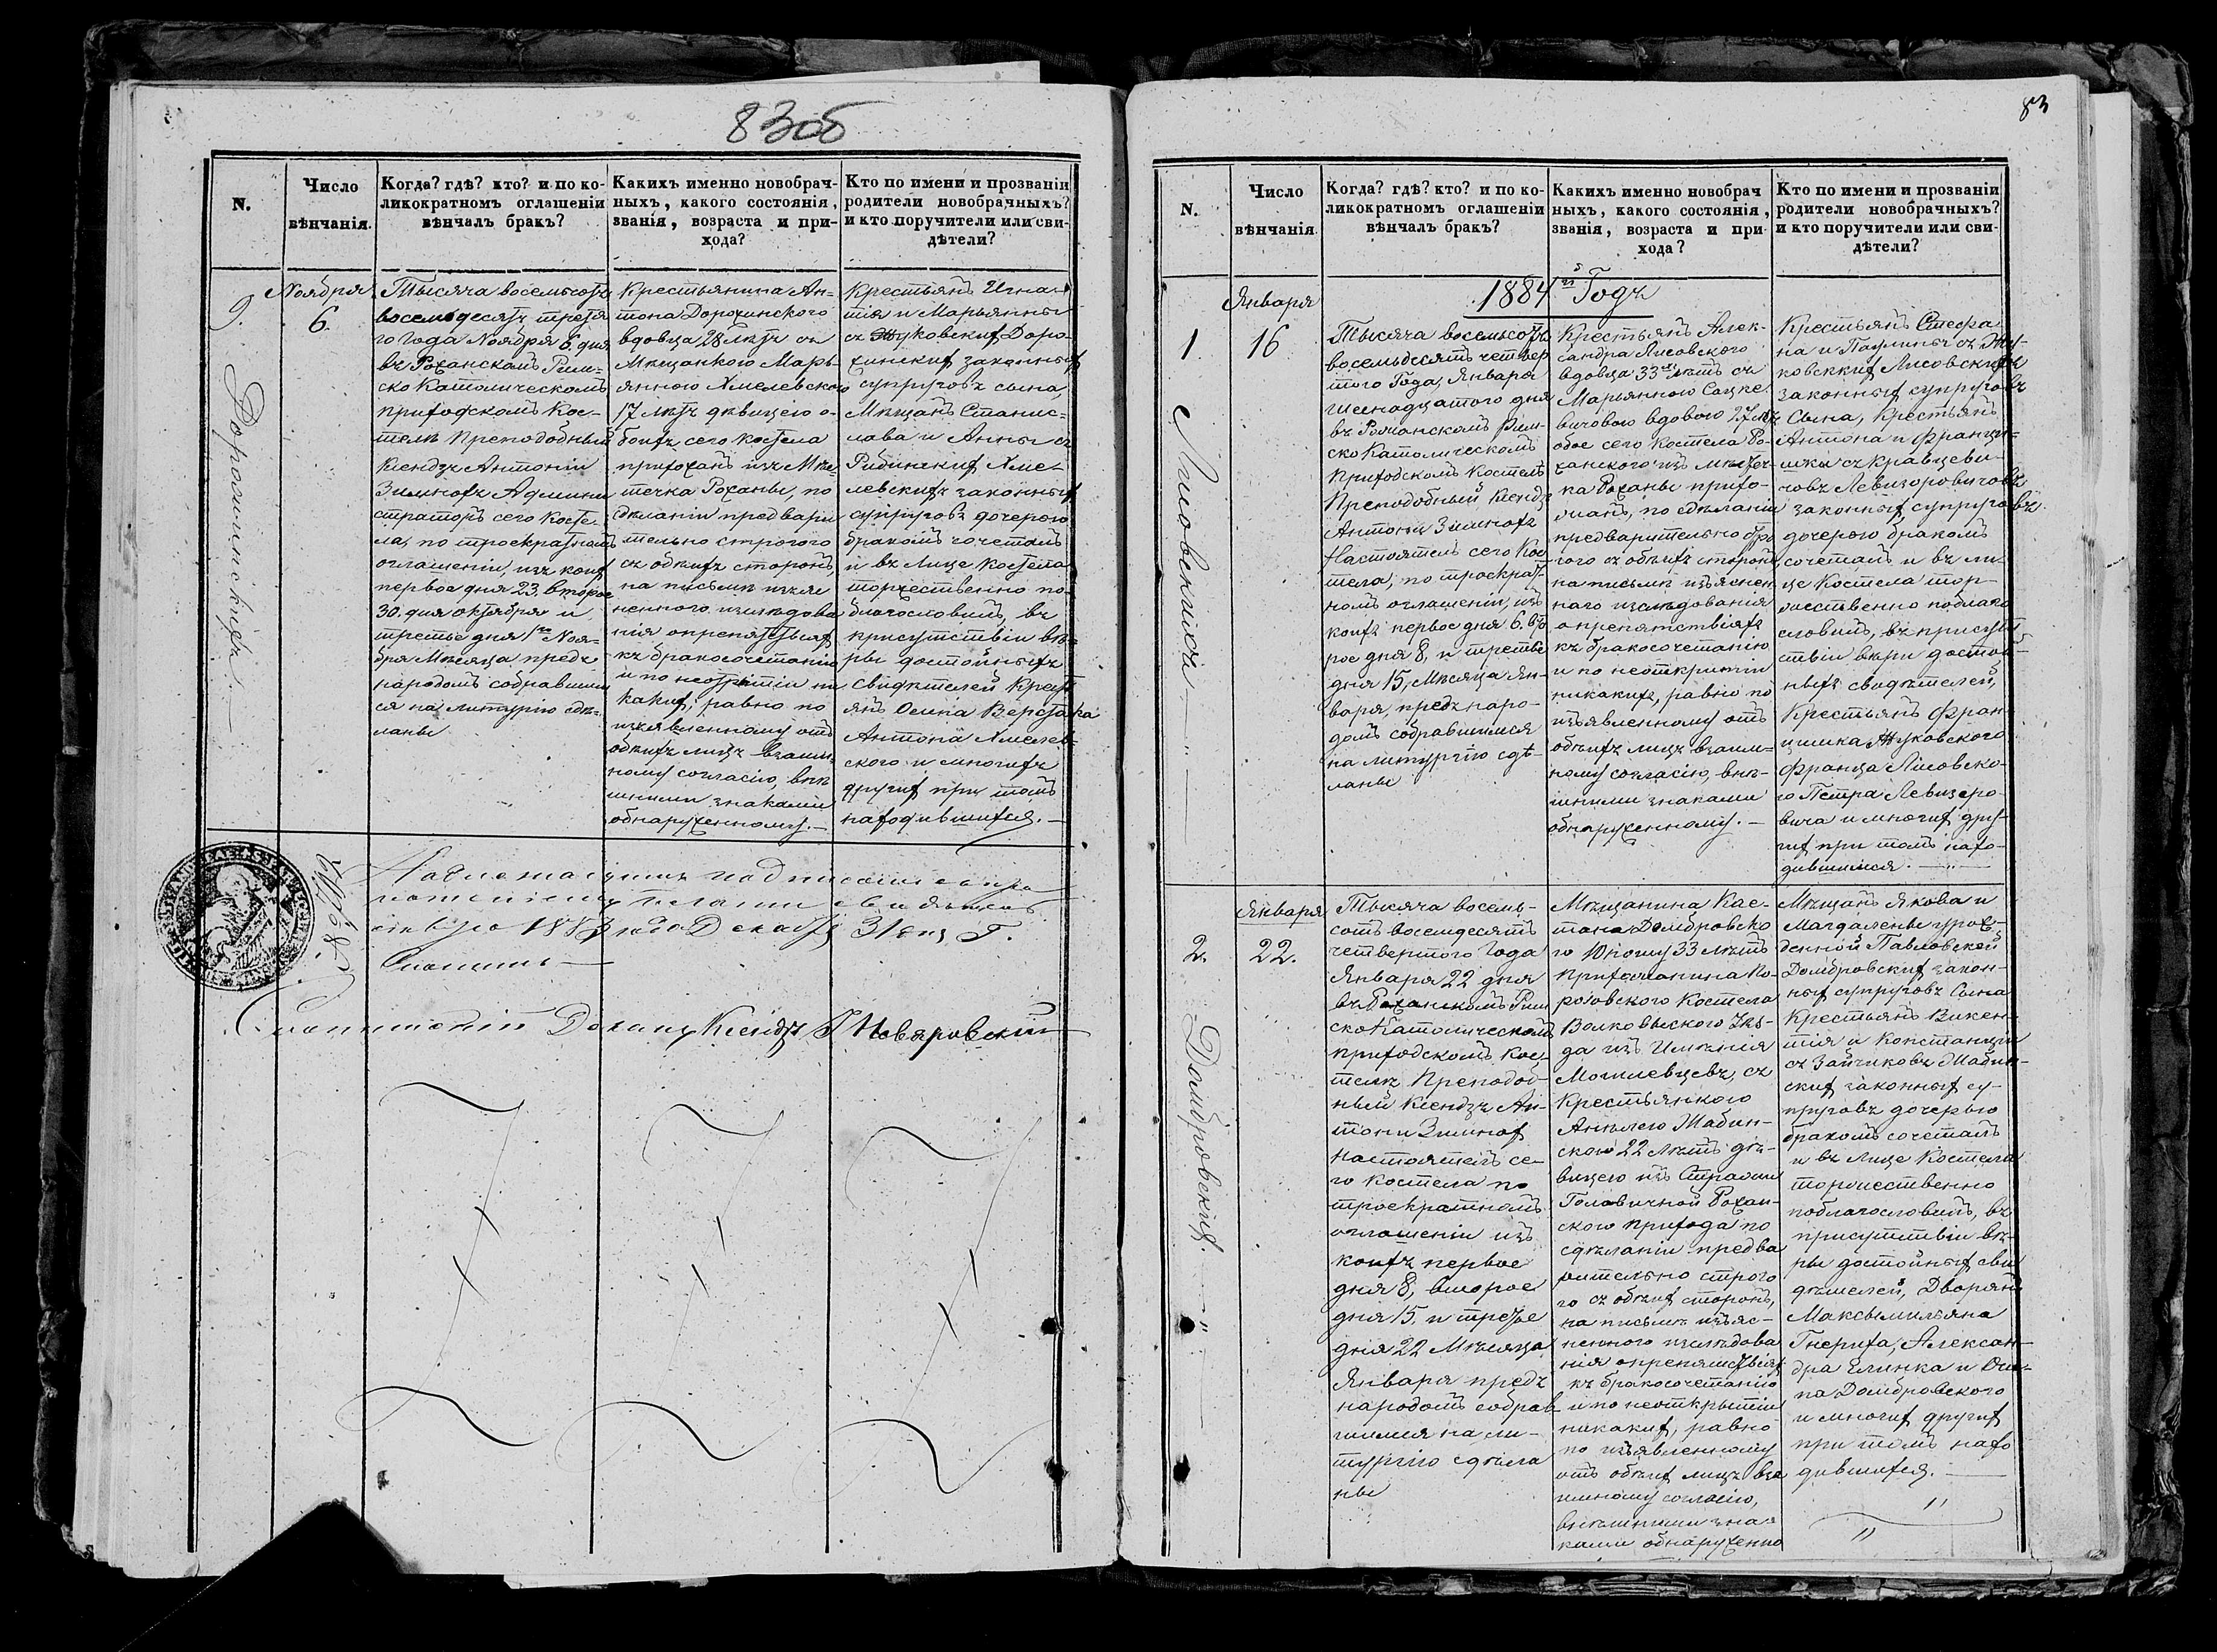 83об
N.
Число
вѣнчанія.
Когда? гдѣ? кто? и по ко-
ликократномъ оглашеніи
вѣнчалъ бракъ?
Какихъ именно новобрач-
ныхъ, какого состоянія,
званія, возраста и при-
хода?
Кто по имени и прозваніи
родители новобрачныхъ?
и кто поручители или сви-
дѣтели?
9.
Ноября
6.
Тысяча восемьсотъ
восемьдесятъ третья
го Года Ноября 6. дня
въ Рожанскомъ Рим-
ско Католическомъ
приходскомъ Кос-
телѣ Преподобный
Ксендзъ Антоній
Зимнохъ Админи
страторъ сего Косте-
ла, по троекратномъ
оглашеніи, изъ коихъ
первое дня 23. второе
30. дня октября и
третье дня 1го Ноя-
бря Мѣсяца предъ
народомъ собравшим
ся на литургію сдѣ-
ланы
Крестьянина Ан-
тона Дорошинского
вдовца 28 лѣтъ съ
Мѣщанкого Марь-
янного Хмелевского
17 лѣтъ дѣвицего о-
боихъ сего Костела
прихожанъ изъ Мѣс
течка Рожаны, по
сдѣланіи предвари
тельно строгого
съ обѣихъ сторонъ,
на письмѣ изъяс
ненного изслѣдова
нія о препятствіяхъ
къ бракосочетанію
и по неоткрытіи ни
какихъ, равно по
изъявленному отъ
обѣихъ лицъ взаим
ному согласію, внѣ
шними знаками
обнаруженному.—
Крестьянъ Игна-
тія и Марьянны
съ Жуковскихъ Доро-
шинскихъ законныхъ
супруговъ сына,
Мѣщанъ Станис=
лава и Анны съ
Рибинскихъ Хме-
левскихъ законныхъ
супруговъ дочерого
бракомъ сочеталъ
и въ Лице Костела
торжественно по-
благословилъ, въ
присутствіи вѣ-
ры достойныхъ
Свидѣтелей Крест
янъ Осипа Верстака
Антона Хмелев-
ского и многихъ
другихъ при томъ
находившихся.—
1883 года Декабря 31 дня
Деканъ Ксендзъ
83
N.
Число
вѣнчанія.
Когда? гдѣ? кто? и по ко-
ликократномъ оглашеніи
вѣнчалъ бракъ?
Какихъ именно новобрач
ныхъ, какого состоянія,
званія, возраста и при
хода?
Кто по имени и прозваніи
родители новобрачныхъ?
и кто поручители или сви-
дѣтели?
1884й Годъ
1.
Января
16
Лисовскихъ
Тысяча восемьсотъ
восемьдесятъ четвер
того Года, Января
шестнадцатого дня
въ Рожанскомъ Рим-
ско Католическомъ
Приходскомъ Костелѣ
Преподобный Ксендзъ
Антоній Зимнохъ
Настоятель сего Кос
тела, по троекрат-
номъ оглашеніи, изъ
коихъ первое дня 6. вто
рое дня 8, и третье
дня 15, Мѣсяца Ян-
варя, предъ наро-
домъ собравшимся
на литургію сдѣ-
ланы
Крестьянъ Алек-
сандра Лисовского
вдовца 33хъ лѣтъ съ
Марьянного Сацке-
вичового вдового 27 лѣтъ
обое сего Костела Ро-
жанского изъ мѣстеч-
ка Рожаны прихо-
жанъ, по сдѣланіи
предварительно стро
гого съ обѣихъ сторонъ
на письмѣ изъяснен
наго изслѣдованія
о препятствіяхъ
къ бракосочетанію
и по неоткрытіи
никакихъ, равно по
изъявленному отъ
обѣихъ лицъ взаим-
ному согласію, внѣ-
шними знаками
обнаруженному.—
Крестьянъ Стефа
на и Паулины съ Жу-
ковскихъ Лисовскихъ
законныхъ супруговъ
Сына, Крестьянъ
Антона и Францы-
шки съ Кравцеви-
човъ Левизоровичовъ
законныхъ супруговъ
дочерого бракомъ
сочеталъ и въ ли
це Костела тор-
жественно поблаго
словилъ, въ присут
ствіи вѣри достой-
ныхъ свидѣтелей,
Крестьянъ Фран-
цишка Жуковского
Франца Лисовско-
го Петра Левизоро-
вича и многихъ дру-
гихъ при томъ нахо-
дившимся.
2.
Января
22.
Домбровскихъ.
Тысяча восемь-
сотъ восемдесятъ
четвертого Года
Января 22 дня
въ Рожанскомъ Рим
ско Католическомъ
приходскомъ Кос-
телѣ Преподоб-
ный Ксендзъ Ан-
тони Зимнохъ
настоятель се-
го Костела по
троекратномъ
оглашеніи изъ
коихъ первое
дня 8, второе
дня 15, и третье
дня 22 Мѣсяца
Января предъ
народомъ собрав-
шимся на ли-
тургію сдѣла
ны
Мѣщанина Кае-
тана Домбровско
го Юношу 33 лѣтъ
Прихожанина По-
розовского Костела
Волковыского Уѣз-
да изъ Имѣнія
Могилевцевъ, съ
Крестьянкого
Анѣлего Жабин-
ского 22 лѣтъ дѣ-
вицего изъ Стражи
Головичной Рожан-
ского прихода по
сдѣланіи предва
рительно строго
го съ обѣихъ сторонъ,
на письмѣ изъяс-
ненного изслѣдова
нія о препятствіяхъ
къ бракосочетанію
и по неоткрытіи
никакихъ, равно
по изъявленному
отъ обѣихъ лицъ вза
имному согласію,
внѣшними зна-
ками обнаруженно
Мѣщанъ Якова и
Магдалены урож-
денной Павловской
Домбровскихъ закон-
ныхъ супруговъ Сына
Крестьянъ Викен-
тія и Констанціи
съ Зайчиковъ Жабин-
скихъ законныхъ су-
пруговъ дочерью
бракомъ сочеталъ
и въ Лице Костела
торжественно
поблагословилъ, въ
присутствіи вѣ-
ры достойныхъ сви
дѣтелей, Дворянъ
Максымильяна
Гнериха, Алексан-
дра Глинка и Оси-
па Домбровского
и многихъ другихъ
при томъ нахо
дившихся.—